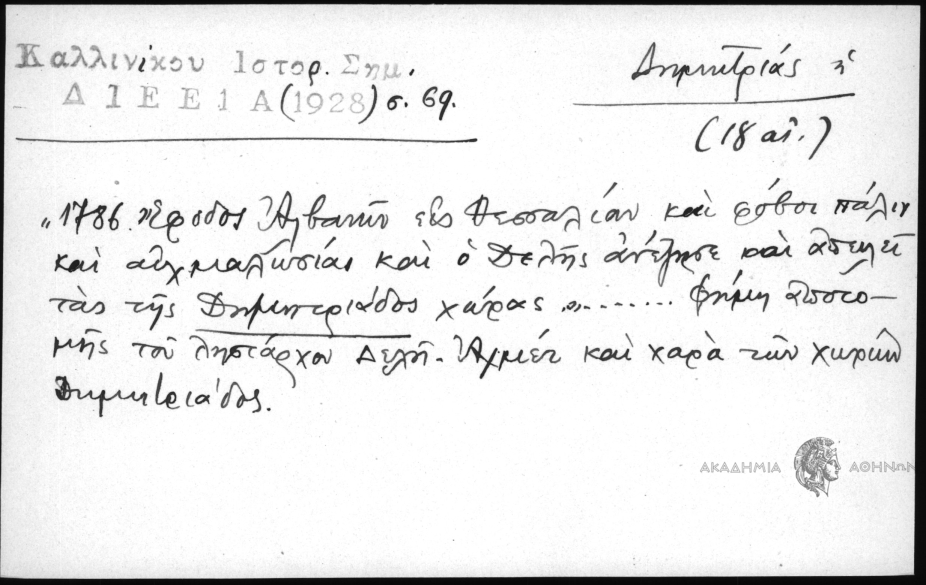 Καλλινίκου Ιστορ. Σημ.
Δ Ι Ε Ε Ι Α (1928) σ. 69.
Δημητριάς ἡ
(18 αἰ.)
„1786. Ἔφοδος Ἀλβανῶν εἰς Θεσσαλίαν καὶ φόβοι πάλιν
καὶ αἰχμαλωσίαι καὶ ὁ Δελῆς ἀνέζησε καὶ ἀπειλεῖ
τὰς τῆς Δημητριάδος χώρας „........ Φήμη ἀποτο-
μῆς τοῦ λῃστάρχου Δελῆ-Ἀχμέτ καὶ χαρὰ τῶν χωρῶν
Δημητριάδος.
ΑΚΑΔΗΜΙΑ ΑΘΗΝΩΝ